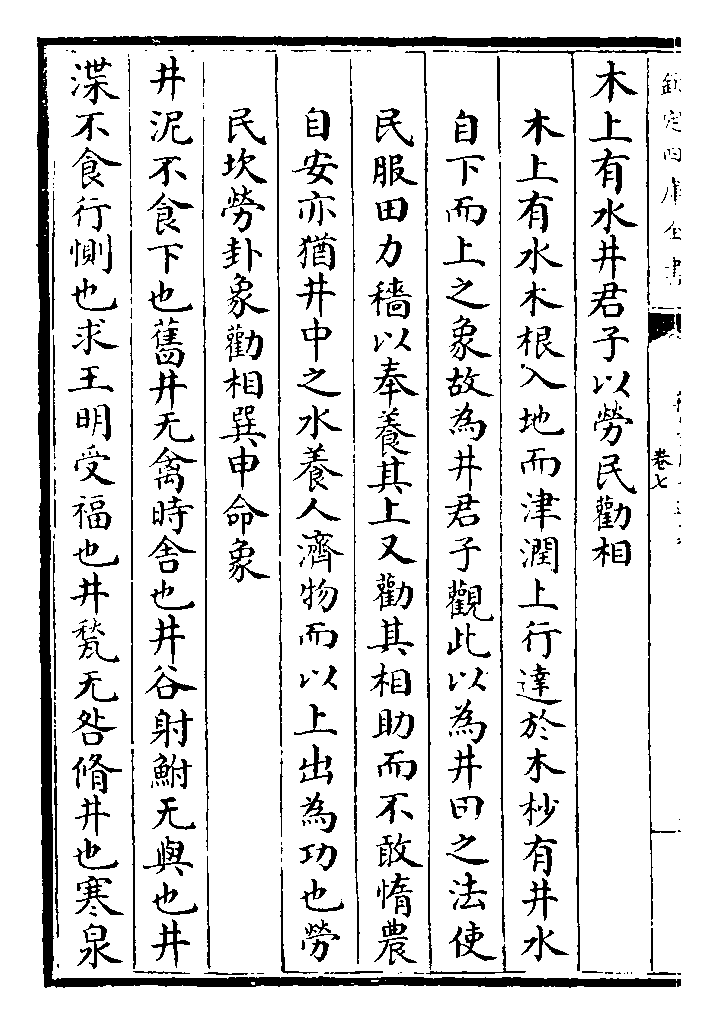 欽定四庫全書
卷七
木上有水井君子以勞民勸相
木上有水木根入地而津潤上行達於木杪有井水
自下而上之象故為井君子觀此以為井田之法使
民服田力穡以奉養其上又勸其相助而不敢惰農
自安亦猶井中之水養人濟物而以上出為功也勞
民坎勞卦象勸相巽申命象
井泥不食下也舊井无禽時舍也井谷射鮒无與也井
渫不食行惻也求王明受福也井甃无咎脩井也寒泉